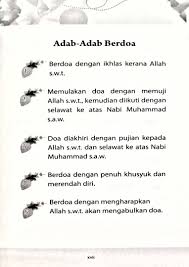 Adab-Adab Berdoa
Berdoa dengan ikhlas kerana Allah
s.w.t.
Memulakan doa dengan memuji
Allah s.w.t., kemudian diikuti dengan
selawat ke atas Nabi Muhammad
s.a.w.
Doa diakhiri dengan pujian kepada
Allah s.w.t. dan selawat ke atas Nabi
Muhammad s.a.w.
Berdoa dengan penuh khusyuk dan
merendah diri.
Berdoa dengan mengharapkan
Allah s.w.t. akan mengabulkan doa.